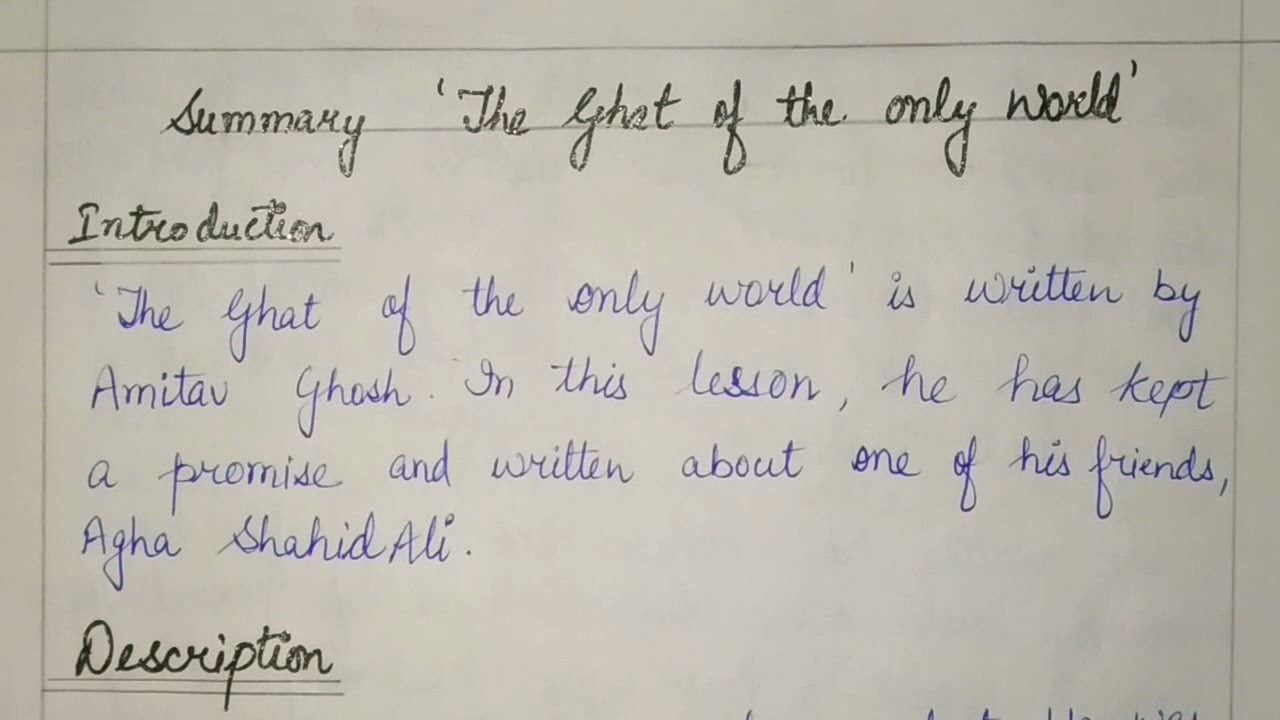 Summary 'The Ghat of the only world'
Introduction
'The Ghat of the only world' is written by
Amitav Ghosh. In this lesson, he has kept
a promise and written about one of his friends,
Agha Shahid Ali.
Description